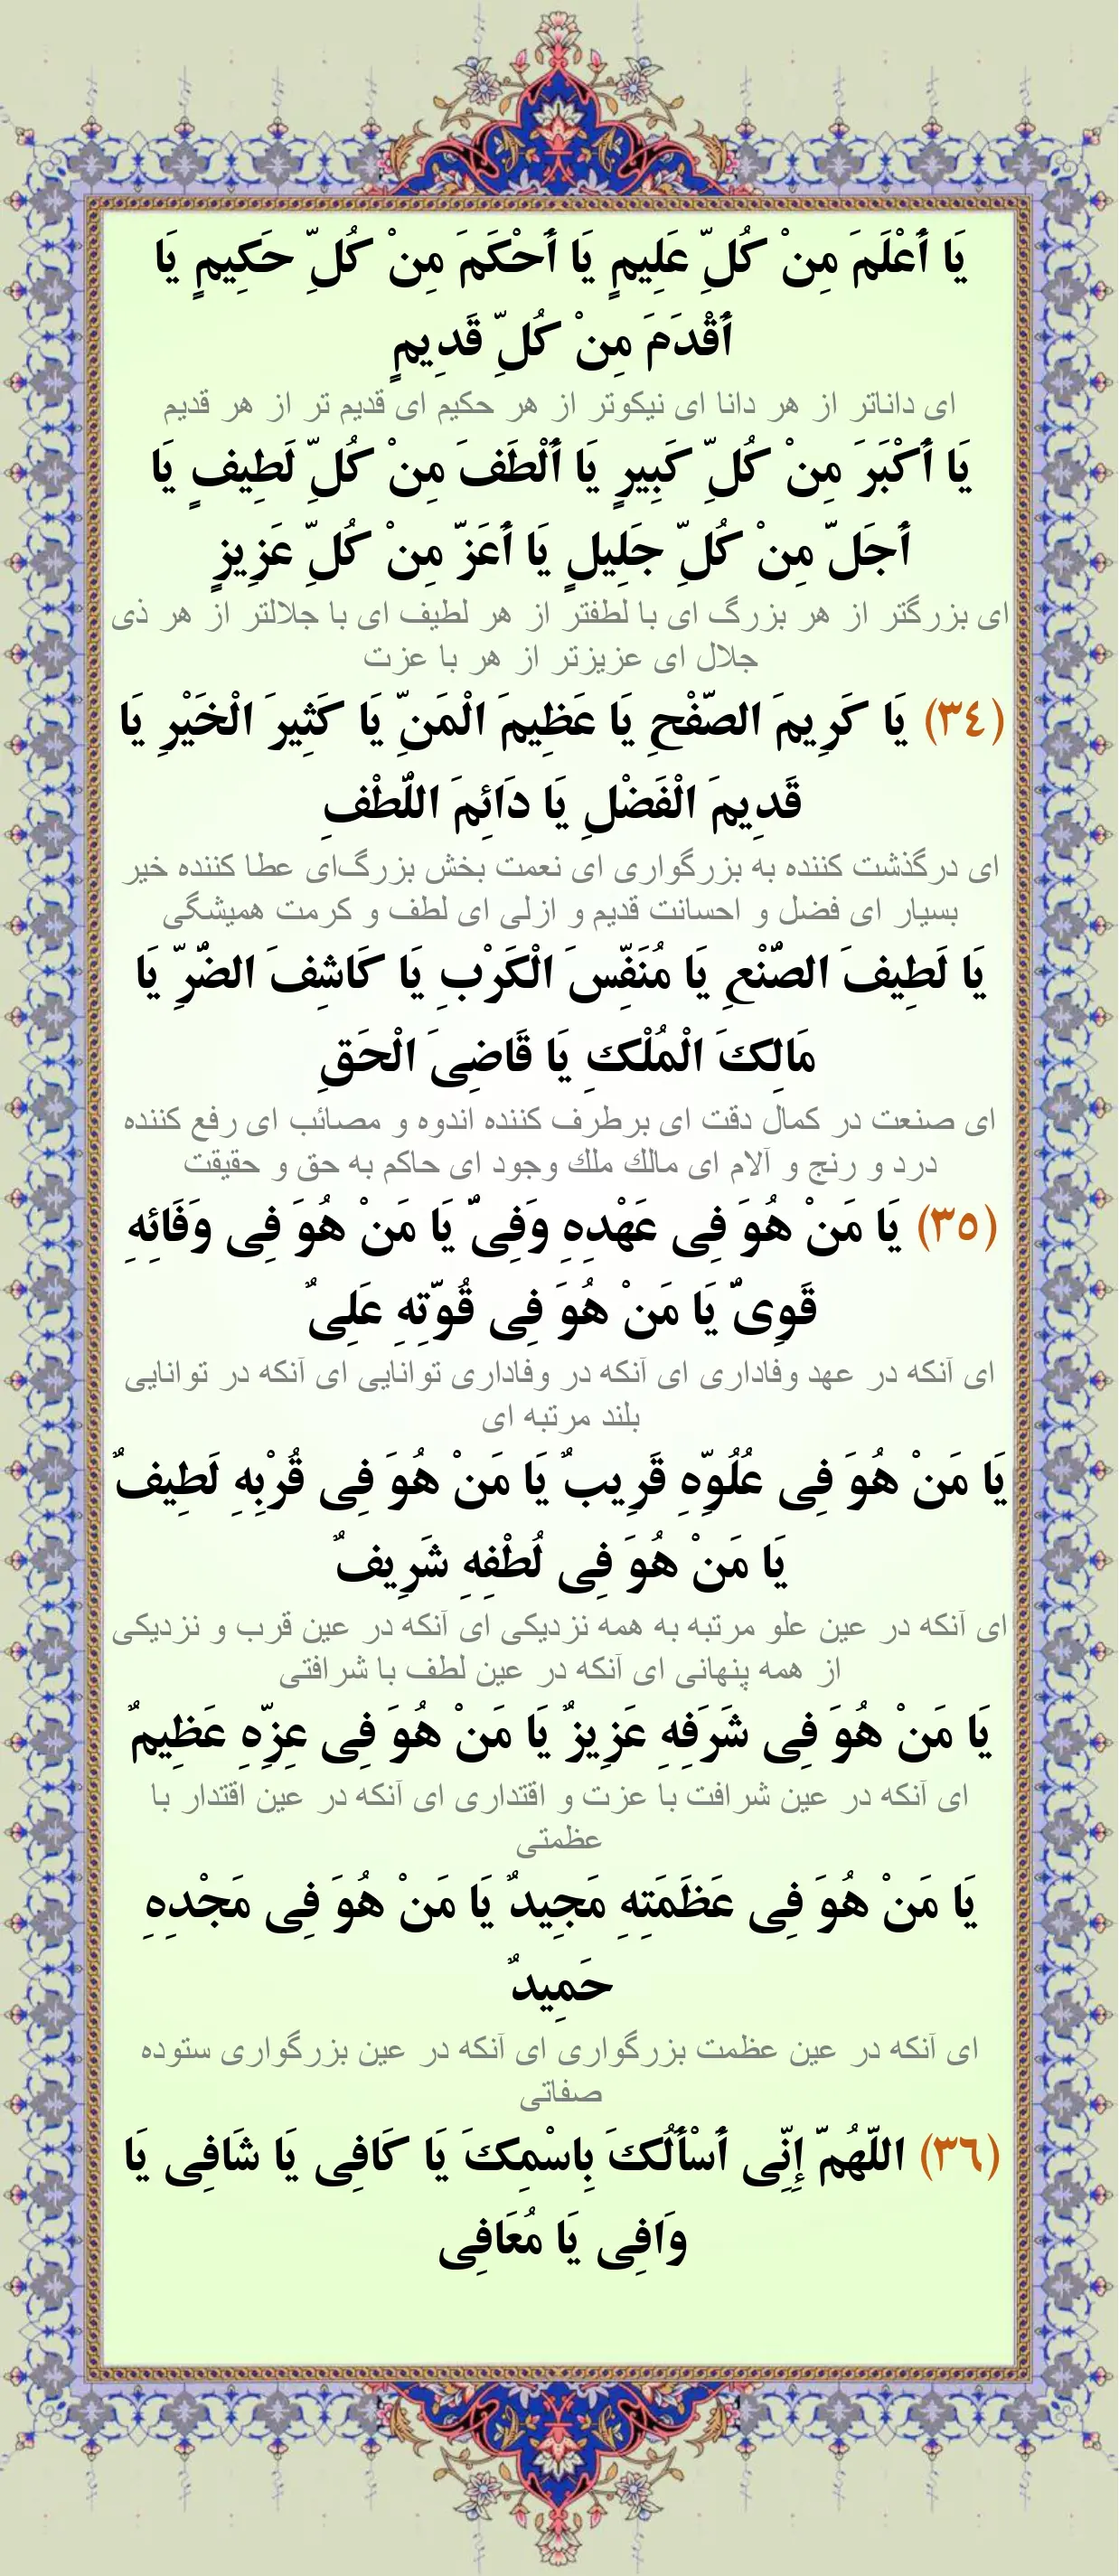 يَا أَعْلَمَ مِنْ كُلِّ عَلِيمٍ يَا أَحْكَمَ مِنْ كُلِّ حَكِيمٍ يَا
أَقْدَمَ مِنْ كُلِّ قَدِيمٍ
ای داناتر از هر دانا ای نیکوتر از هر حکیم ای قدیم تر از هر قدیم
يَا أَكْبَرَ مِنْ كُلِّ كَبِيرٍ يَا أَلْطَفَ مِنْ كُلِّ لَطِيفٍ يَا
أَجَلّ مِنْ كُلِّ جَلِيلٍ يَا أَعَزّ مِنْ كُلِّ عَزِيزٍ
ای بزرگتر از هر بزرگ ای با لطفتر از هر لطیف ای با جلالتر از هر ذی
جلال ای عزیزتر از هر با عزت
(٣٤) يَا كَرِيمَ الصّفْحِ يَا عَظِيمَ الْمَنِّ يَا كَثِيرَ الْخَيْرِ يَا
قَدِيمَ الْفَضْلِ يَا دَائِمَ اللّطْفِ
ای درگذشت کننده به بزرگواری ای نعمت بخش بزرگ‌ای عطا کننده خیر
بسیار ای فضل و احسانت قدیم و ازلی ای لطف و کرمت همیشگی
يَا لَطِيفَ الصّنْعِ يَا مُنَفِّسَ الْكَرْبِ يَا كَاشِفَ الضّرِّ يَا
مَالِكَ الْمُلْكِ يَا قَاضِیَ الْحَقِ
ای صنعت در کمال دقت ای برطرف کننده اندوه و مصائب ای رفع کننده
درد و رنج و آلام ای مالك ملك وجود ای حاکم به حق و حقیقت
(٣٥) يَا مَنْ هُوَ فِی عَهْدِهِ وَفِیٌ يَا مَنْ هُوَ فِی وَفَائِهِ
قَوِیٌ يَا مَنْ هُوَ فِی قُوّتِهِ عَلِیٌ
ای آنکه در عهد وفاداری ای آنکه در وفاداری توانایی ای آنکه در توانایی
بلند مرتبه ای
يَا مَنْ هُوَ فِی عُلُوِّهِ قَرِيبٌ يَا مَنْ هُوَ فِی قُرْبِهِ لَطِيفٌ
يَا مَنْ هُوَ فِی لُطْفِهِ شَرِيفٌ
ای آنکه در عین علو مرتبه به همه نزدیکی ای آنکه در عین قرب و نزدیکی
از همه پنهانی ای آنکه در عین لطف با شرافتی
يَا مَنْ هُوَ فِی شَرَفِهِ عَزِيزٌ يَا مَنْ هُوَ فِی عِزِّهِ عَظِيمٌ
ای آنکه در عین شرافت با عزت و اقتداری ای آنکه در عین اقتدار با
عظمتی
يَا مَنْ هُوَ فِی عَظَمَتِهِ مَجِيدٌ يَا مَنْ هُوَ فِی مَجْدِهِ
حَمِيدٌ
ای آنکه در عین عظمت بزرگواری ای آنکه در عین بزرگواری ستوده
صفاتی
(٣٦) اللّهُمّ إِنِّی أَسْأَلُكَ بِاسْمِكَ يَا كَافِی يَا شَافِی يَا
وَافِی يَا مُعَافِی